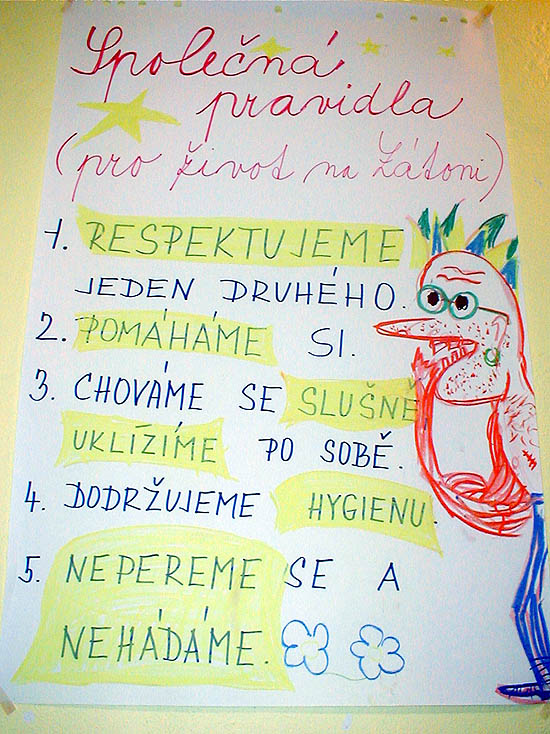 Společná
pravidla
(pro život na Zátoni)
1. RESPEKTUJEME
JEDEN DRUHÉHO.
2. POMÁHÁME SI.
3. CHOVÁME SE SLUŠNĚ
UKLÍZÍME PO SOBĚ.
4. DODRŽUJEME HYGIENU.
5. NEPEREME SE A
NEHÁDÁME.